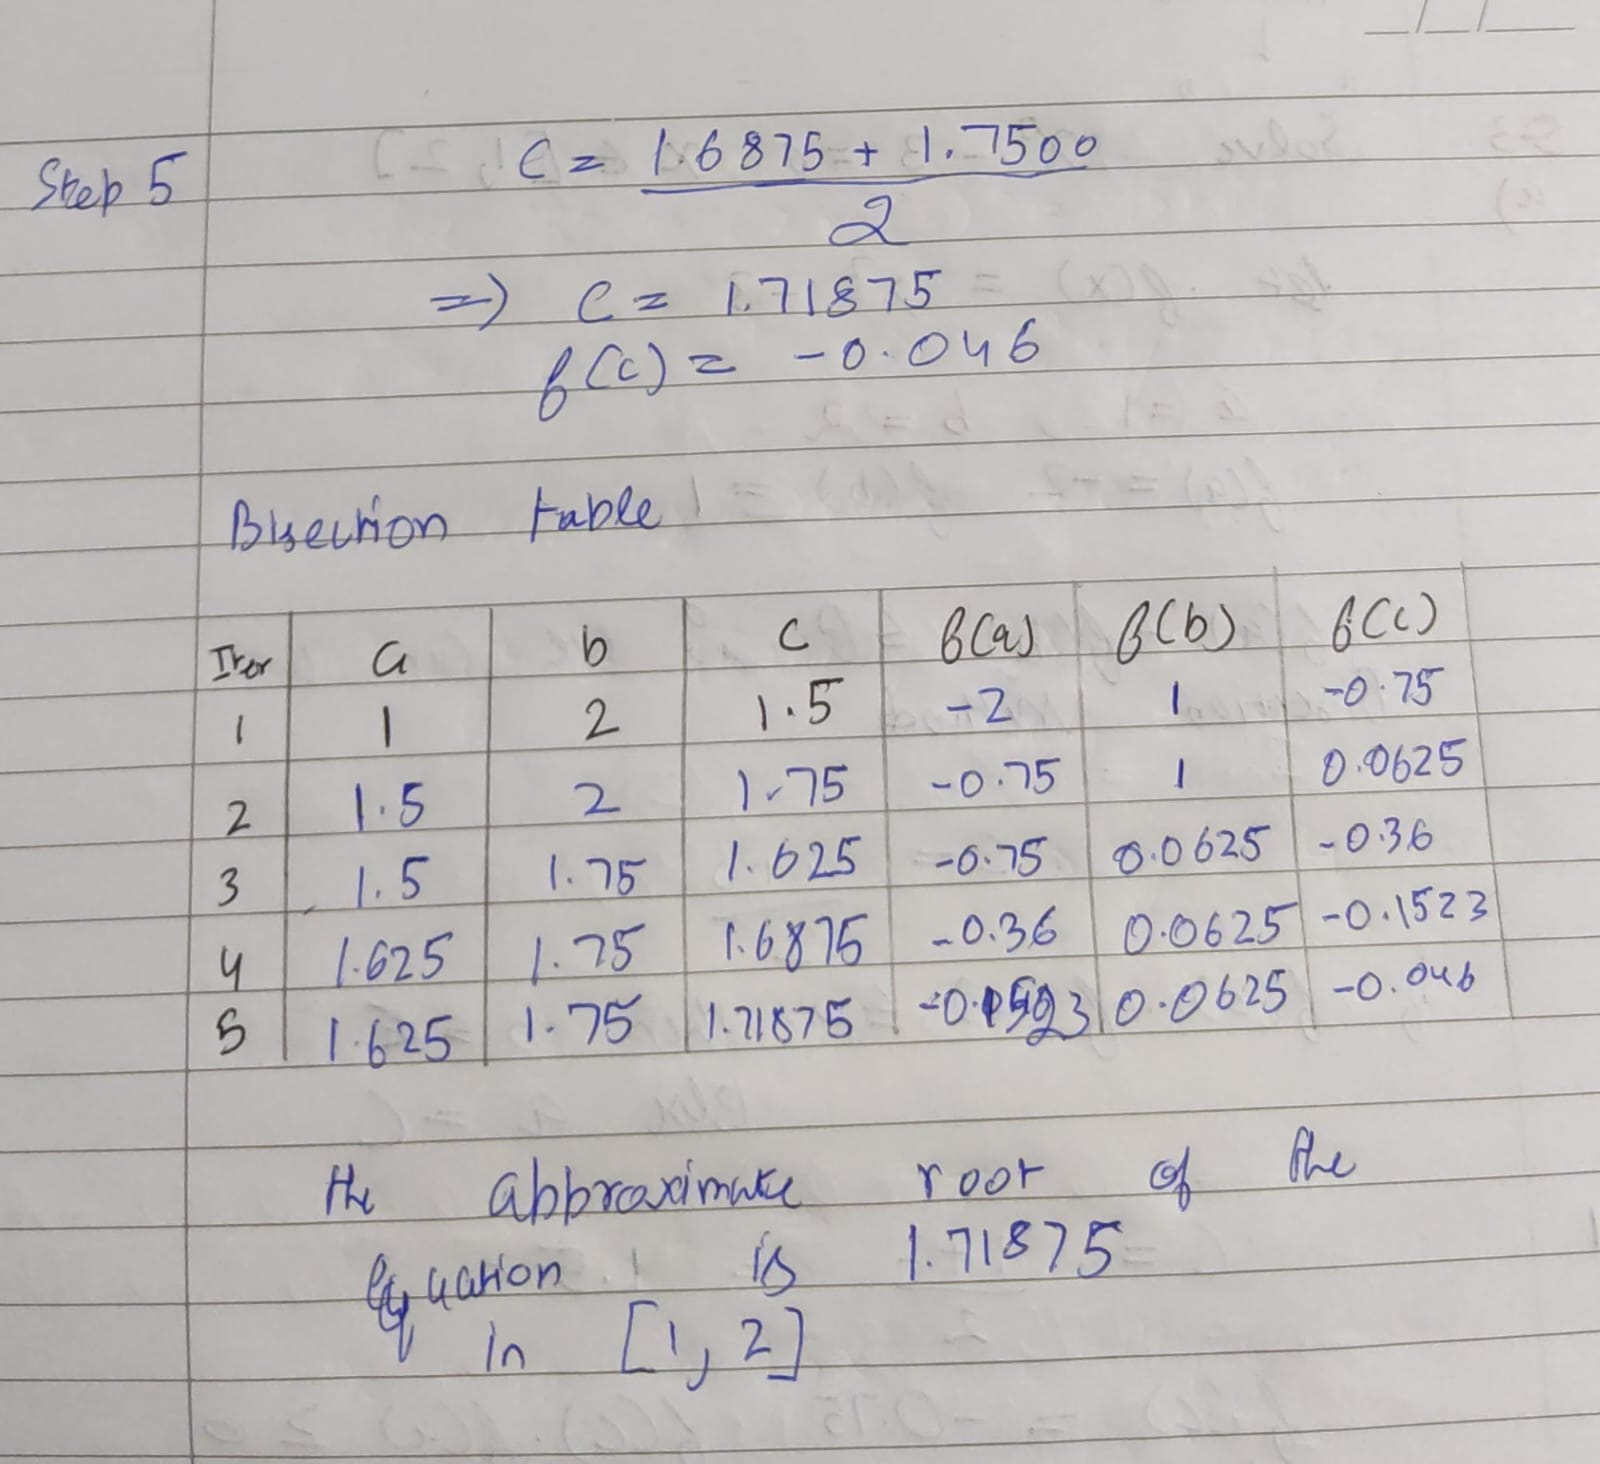 Step 5
C = 1.6875 + 1.7500
2
=> C = 1.71875
f(c) = -0.046
Bisection table
Iter a b c f(a) f(b) f(c)
1 1 2 1.5 -2 1 -0.75
2 1.5 2 1.75 -0.75 1 0.0625
3 1.5 1.75 1.625 -0.75 0.0625 -0.36
4 1.625 1.75 1.6875 -0.36 0.0625 -0.1523
5 1.625 1.75 1.71875 0.0625 -0.046
the approximate root of the
Equation is 1.71875
in [1, 2]